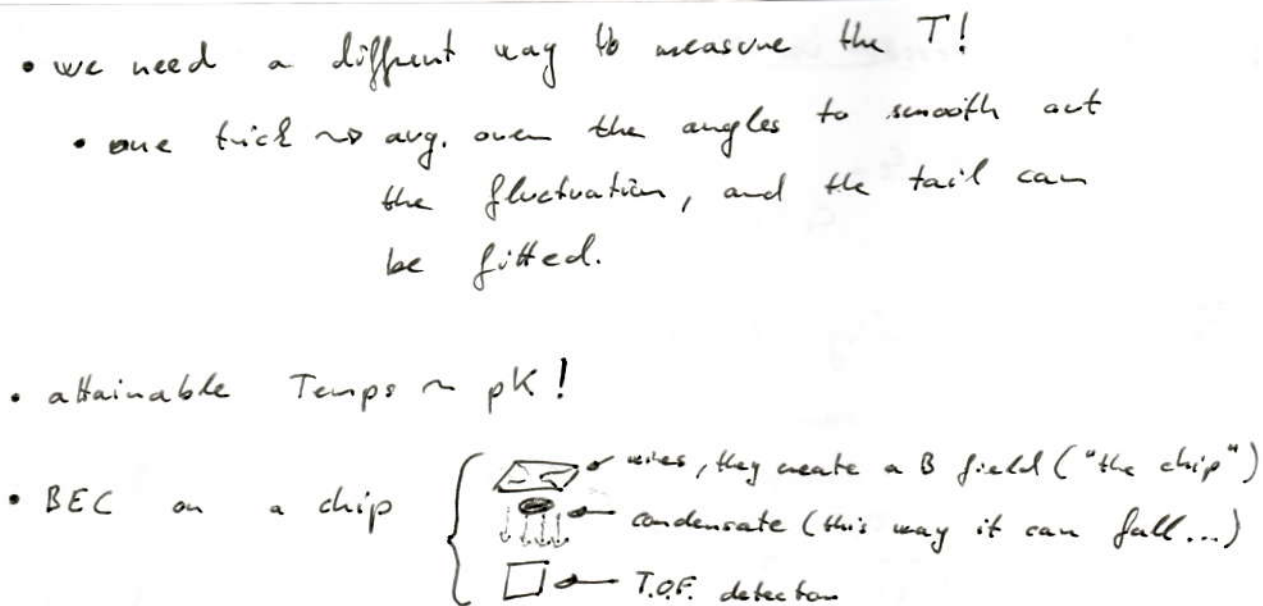 • we need a diffrent way to measure the T!
• one trick ~> avg. over the angles to smooth out
the fluctuation, and the tail can
be fitted.
• attainable Temps ~ pK!
• BEC on a chip { wires, they create a B field ("the chip")
condensate (this way it can fall...)
T.O.F. detector